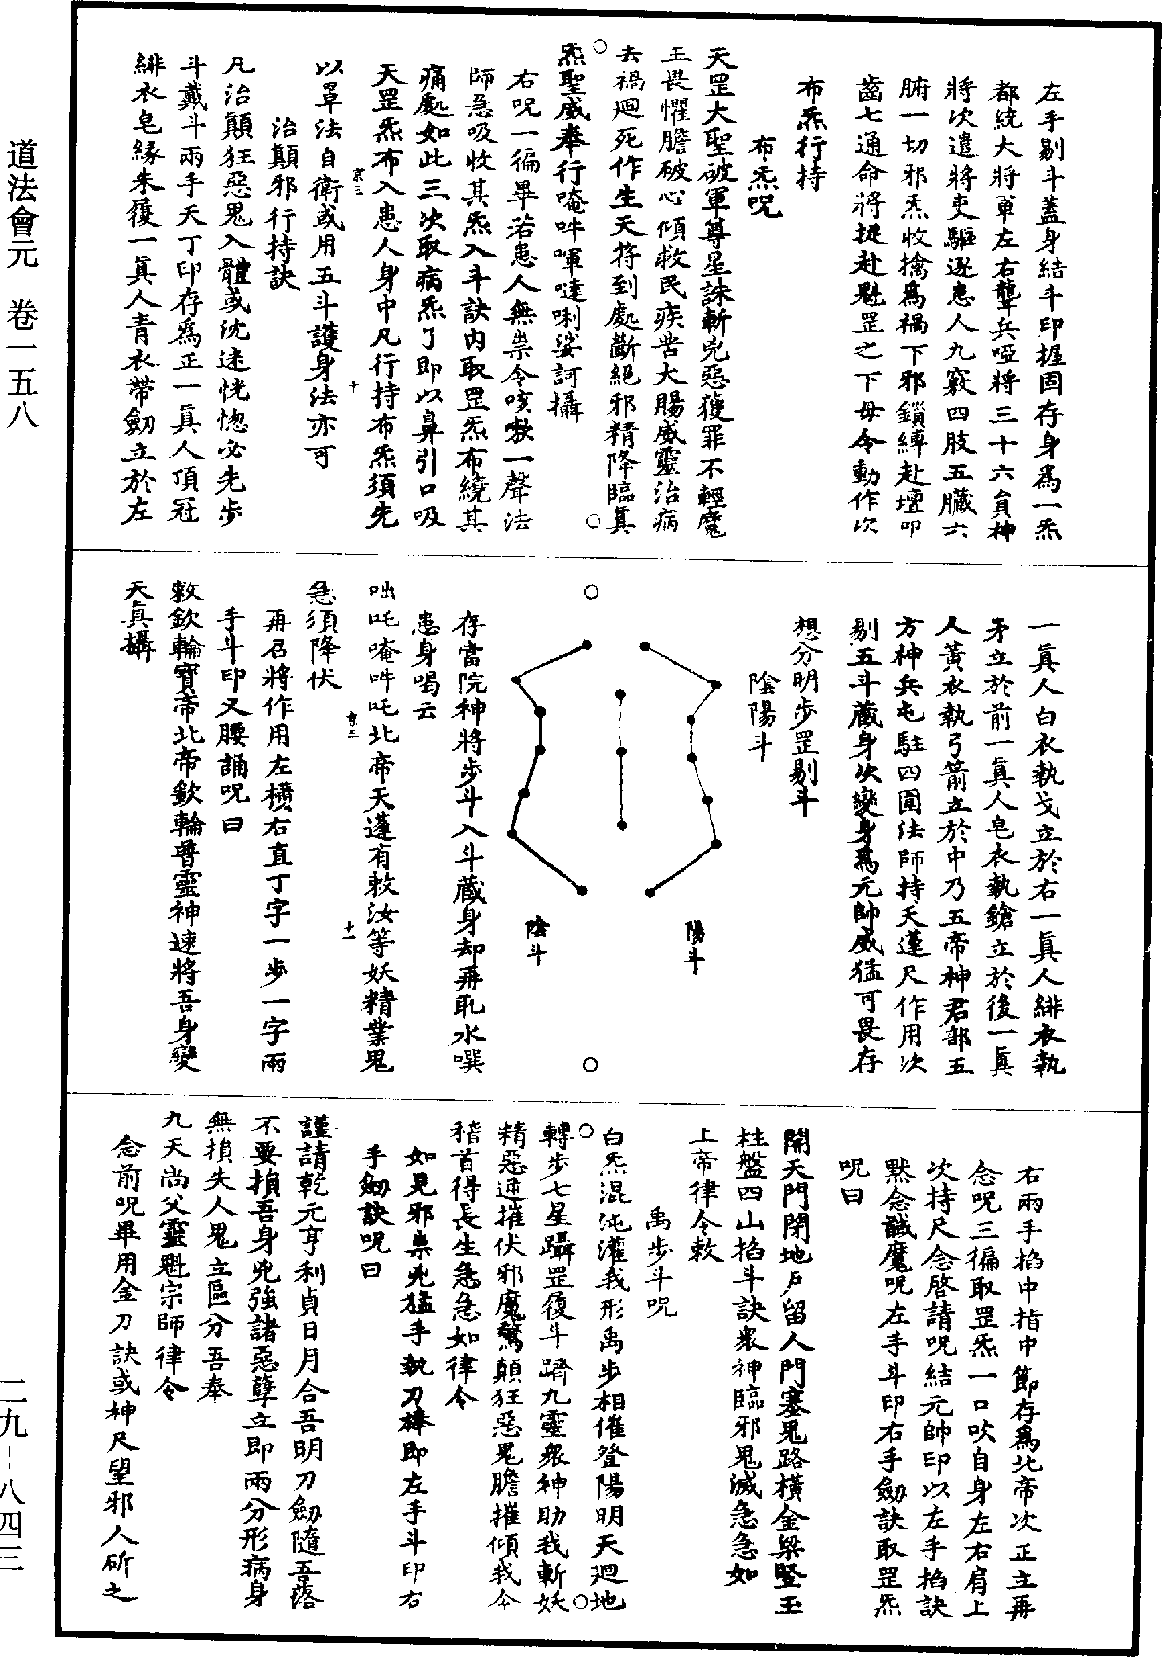 道法會元　卷一五八
左手剔斗蓋身結斗印握固存身爲一炁
都統大將軍左右聾兵啞將三十六員神
將次遣將吏驅逐患人九竅四肢五臟六
腑一切邪炁收擒爲禍下邪鎖縛赴壇叩
齒七通命將捉赴魁罡之下毋令動作次
布炁行持
布炁呪
天罡大聖破軍尊星誅斬兇惡獲罪不輕魔
王畏懼膽破心傾救民疾苦大賜威靈治病
去禍迴死作生天將到處斷絕邪精降臨真
炁聖威奉行唵吽㖮噠唎娑訶攝
右呪一徧畢若患人無祟令咳嗽一聲法
師急吸收其炁入斗訣內取罡炁布繞其
痛處如此三次取病炁了即以鼻引口吸
天罡炁布入患人身中凡行持布炁須先
京三　十
以罩法自衛或用五斗護身法亦可
治顛邪行持訣
凡治顛狂惡鬼入體或沈迷恍惚必先步
斗戴斗兩手天丁印存爲正一真人頂冠
緋衣皂緣朱履一真人青衣帶劒立於左
一真人白衣執戈立於右一真人緋衣執
矛立於前一真人皂衣執鎗立於後一真
人黃衣執弓箭立於中乃五帝神君部五
方神兵屯駐四圍法師持天蓬尺作用次
剔五斗藏身次變身爲元帥威猛可畏存
想分明步罡剔斗
陰陽斗
陽斗
陰斗
存當院神將步斗入斗藏身却再
水噀
患身喝云
咄吒唵吽吒北帝天蓬有敕汝等妖精業鬼
京三　十一
急須降伏
再召將作用左橫右直丁字一步一字兩
手斗印叉腰誦呪曰
敕欽輪寶帝北帝欽輪普靈神速將吾身變
天真攝
右兩手掐中指中節存爲北帝次正立再
念呪三徧取罡炁一口吹自身左右肩上
次持尺念啓請呪結元帥印以左手掐訣
默念誡魔呪左手斗印右手劒訣取罡炁
呪曰
開天門閉地戶留人門塞鬼路橫金梁豎玉
柱盤四山掐斗訣衆神臨邪鬼滅急急如
上帝律令敕
禹步斗呪
白炁混沌灌我形禹步相催登陽明天迴地
轉步七星躡罡履斗躋九靈衆神助我斬妖
精惡逆摧伏邪魔驚顛狂惡鬼膽摧傾我今
稽首得長生急急如律令
如見邪祟兇猛手執刀棒即左手斗印右
手劒訣呪曰
謹請乾元亨利貞日月合吾明刀劒隨吾落
不要損吾身兇強諸惡孽立即兩分形病身
無損失人鬼立區分吾奉
九天尚父靈魁宗師律令
念前呪畢用金刀訣或神尺望邪人斫之
二九－八四三